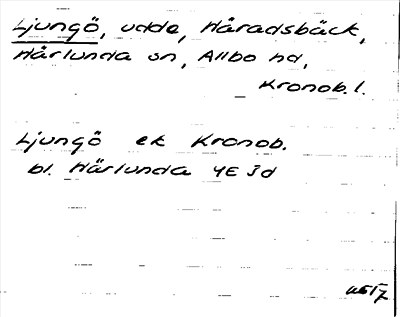 Ljungö, udde, Häradsbäck,
Härlunda sn, Allbo hd,
Kronob. l.
Ljungö ek Kronob.
bl. Härlunda 4E 3d